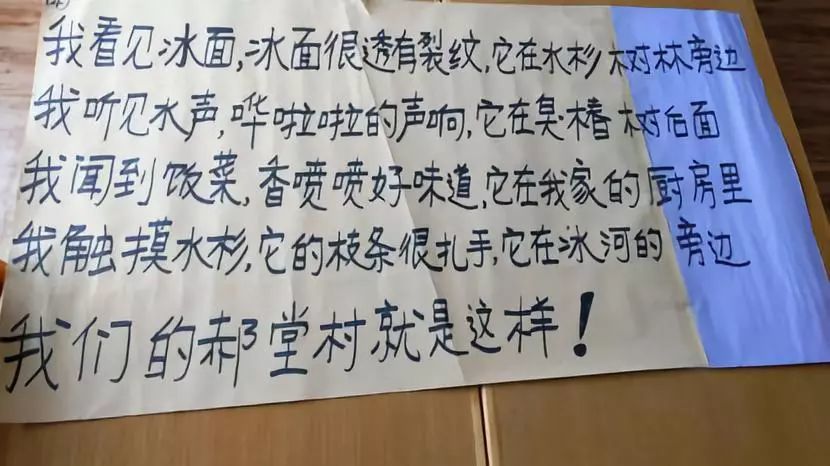 我看见冰面,冰面很透有裂纹,它在水杉树林旁边
我听见水声,哗啦啦的声响,它在臭椿树后面
我闻到饭菜,香喷喷好味道,它在我家的厨房里
我触摸水杉,它的枝条很扎手,它在冰河的旁边
我们的郝堂村就是这样!